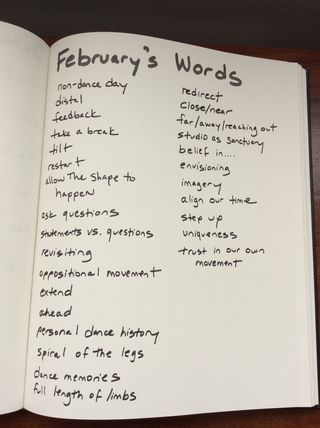 February's Words
non-dance day
distal
feedback
take a break
tilt
restart
allow The Shape to
happen
ask questions
statements vs. questions
revisiting
oppositional movement
extend
ahead
personal dance history
spiral of the legs
dance memories
full length of limbs
redirect
close/near
far/away/reaching out
studio as sanctuary
belief in....
envisioning
imagery
align our time
step up
uniqueness
trust in our own
movement